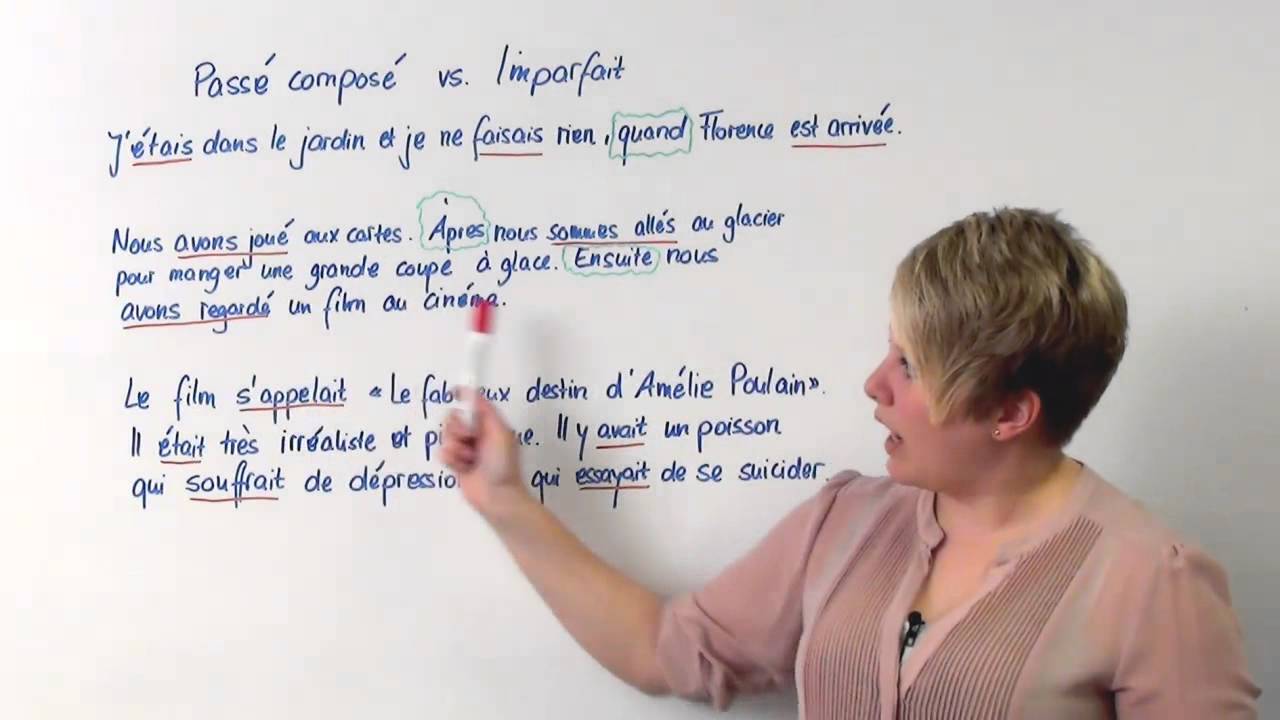 Passé composé vs. Imparfait
J'étais dans le jardin et je ne faisais rien, quand Florence est arrivée.
Nous avons joué aux cartes. Ápres nous sommes allés au glacier
pour manger une grande coupe à glace. Ensuite nous
avons regardé un film au cinéma.
Le film s'appelait «Le destin d'Amélie Poulain».
Il était très irréaliste et Il y avait un poisson
qui souffrait de qui essayait de se suicider.